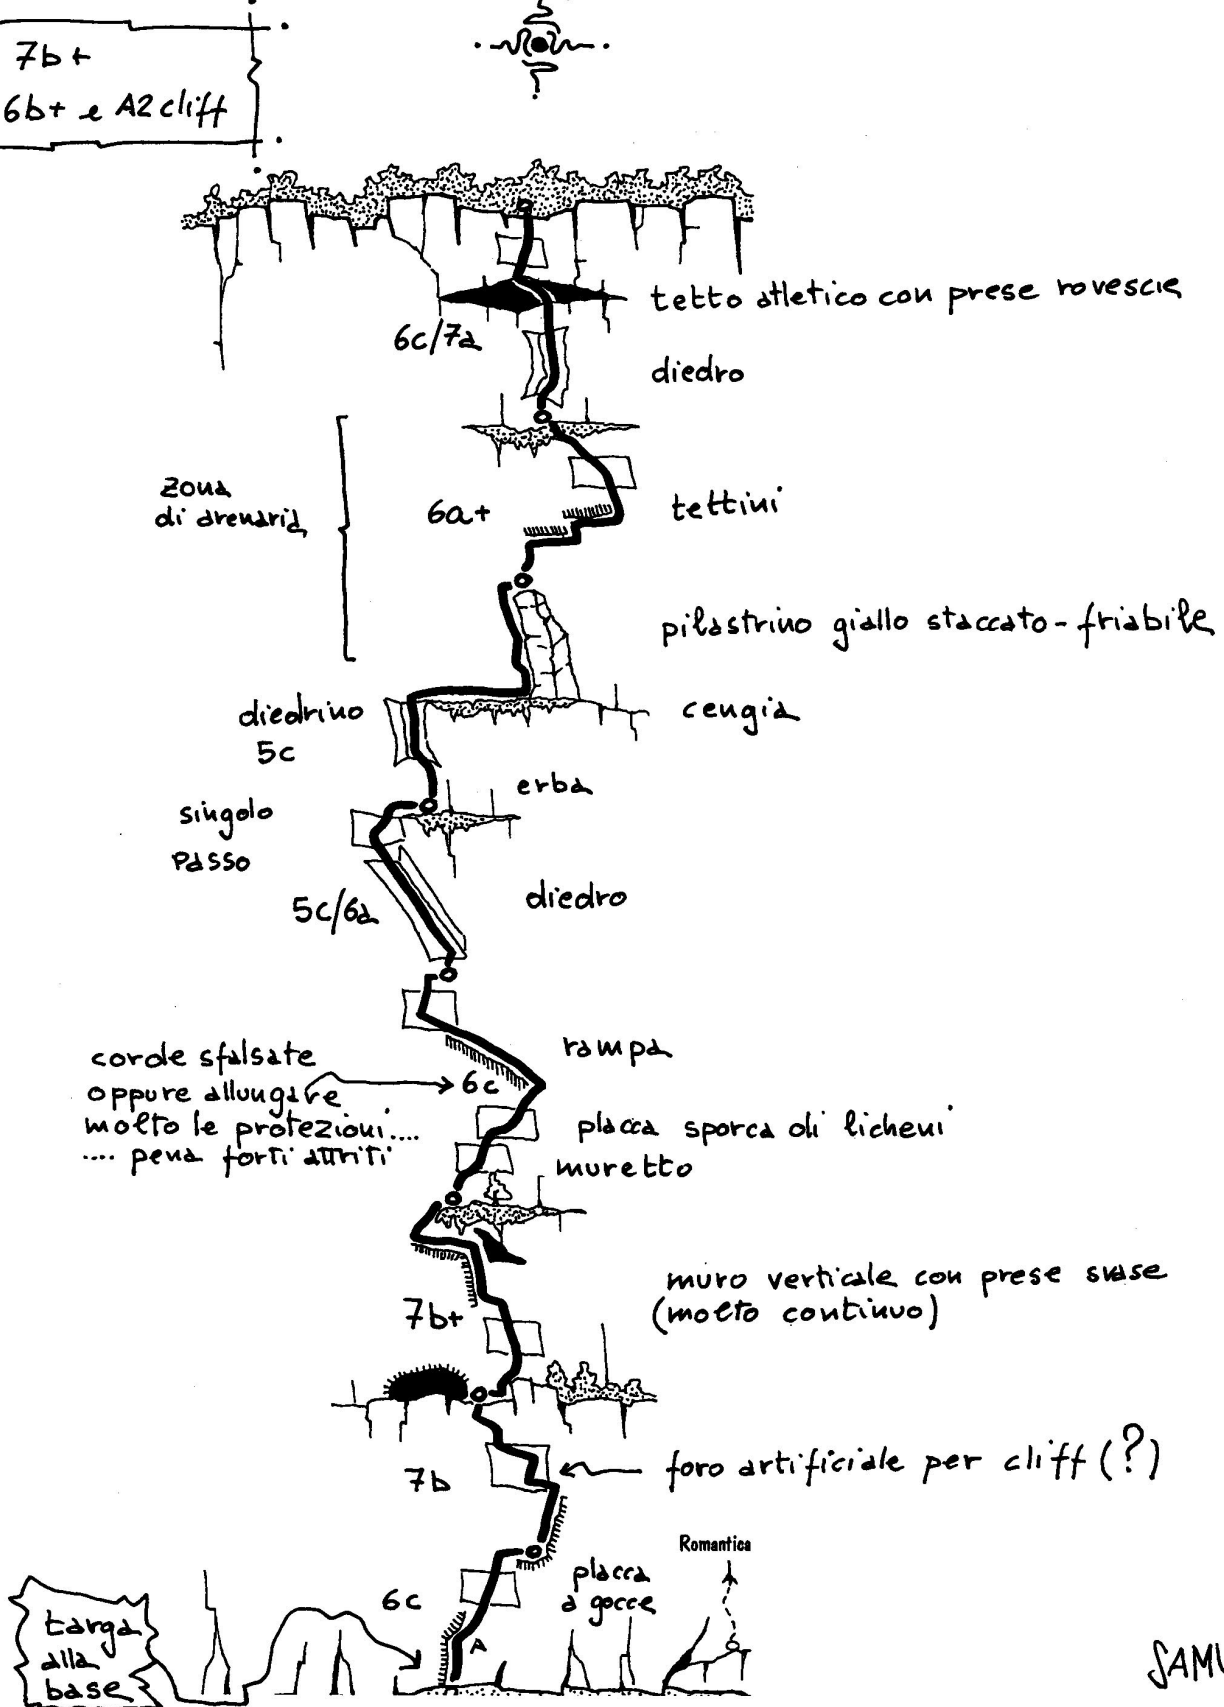 7b+
6b+ e A2 cliff
tetto atletico con prese rovescie
6c/7a
diedro
zona
di arenaria
6a+
tettini
pilastrino giallo staccato - friabile
diedrino
5c
cengia
erba
singolo
passo
5c/6a
diedro
rampa
corde sfalsate
oppure allungare
molto le protezioni....
.... pena forti attriti
6c
placca sporca di licheni
muretto
muro verticale con prese svase
(molto continuo)
7b+
7b
foro artificiale per cliff (?)
Romantica
placca
a gocce
6c
A
targa
alla
base